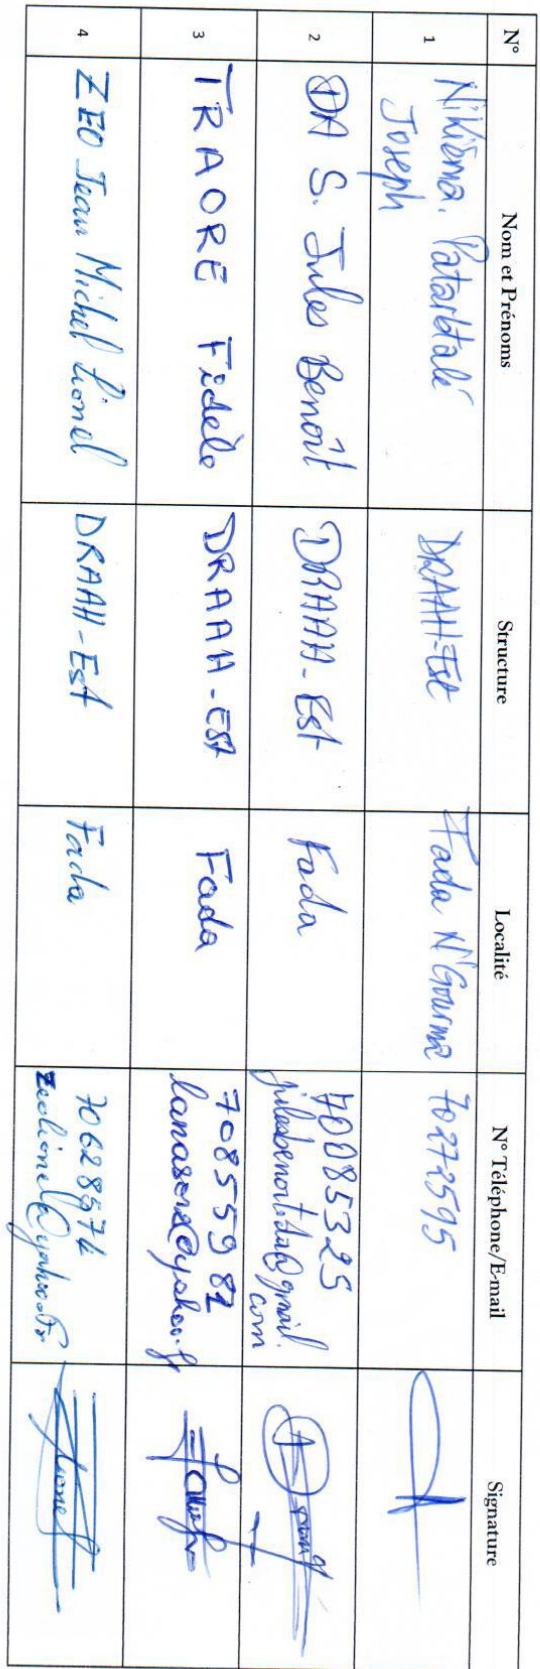 N° Nom et Prénoms Structure Localité N° Téléphone/E-mail Signature
1 Nikiéma Joseph DRAAH-Est Fada N'Gourma 70272595
2 DA S. Jules Benoît DRAAH-Est Fada 70085325
julesbenoit.da@gmail.
com
3 TRAORE Fidèle DRAAH-EST Fada 70855982
4 ZEO Jean Michel Lionel DRAAH-Est Fada 70628574
zeolionel@yahoo.fr